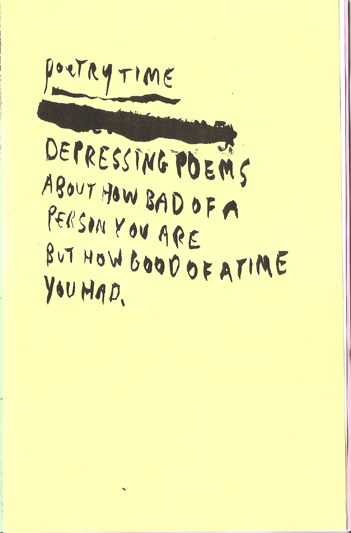 poetRY TIME
DEPRESSING POEMS
ABOUT HOW BAD OF A
PERSON YOU ARE
BUT HOW GOOD OF A TIME
YOU HAD.